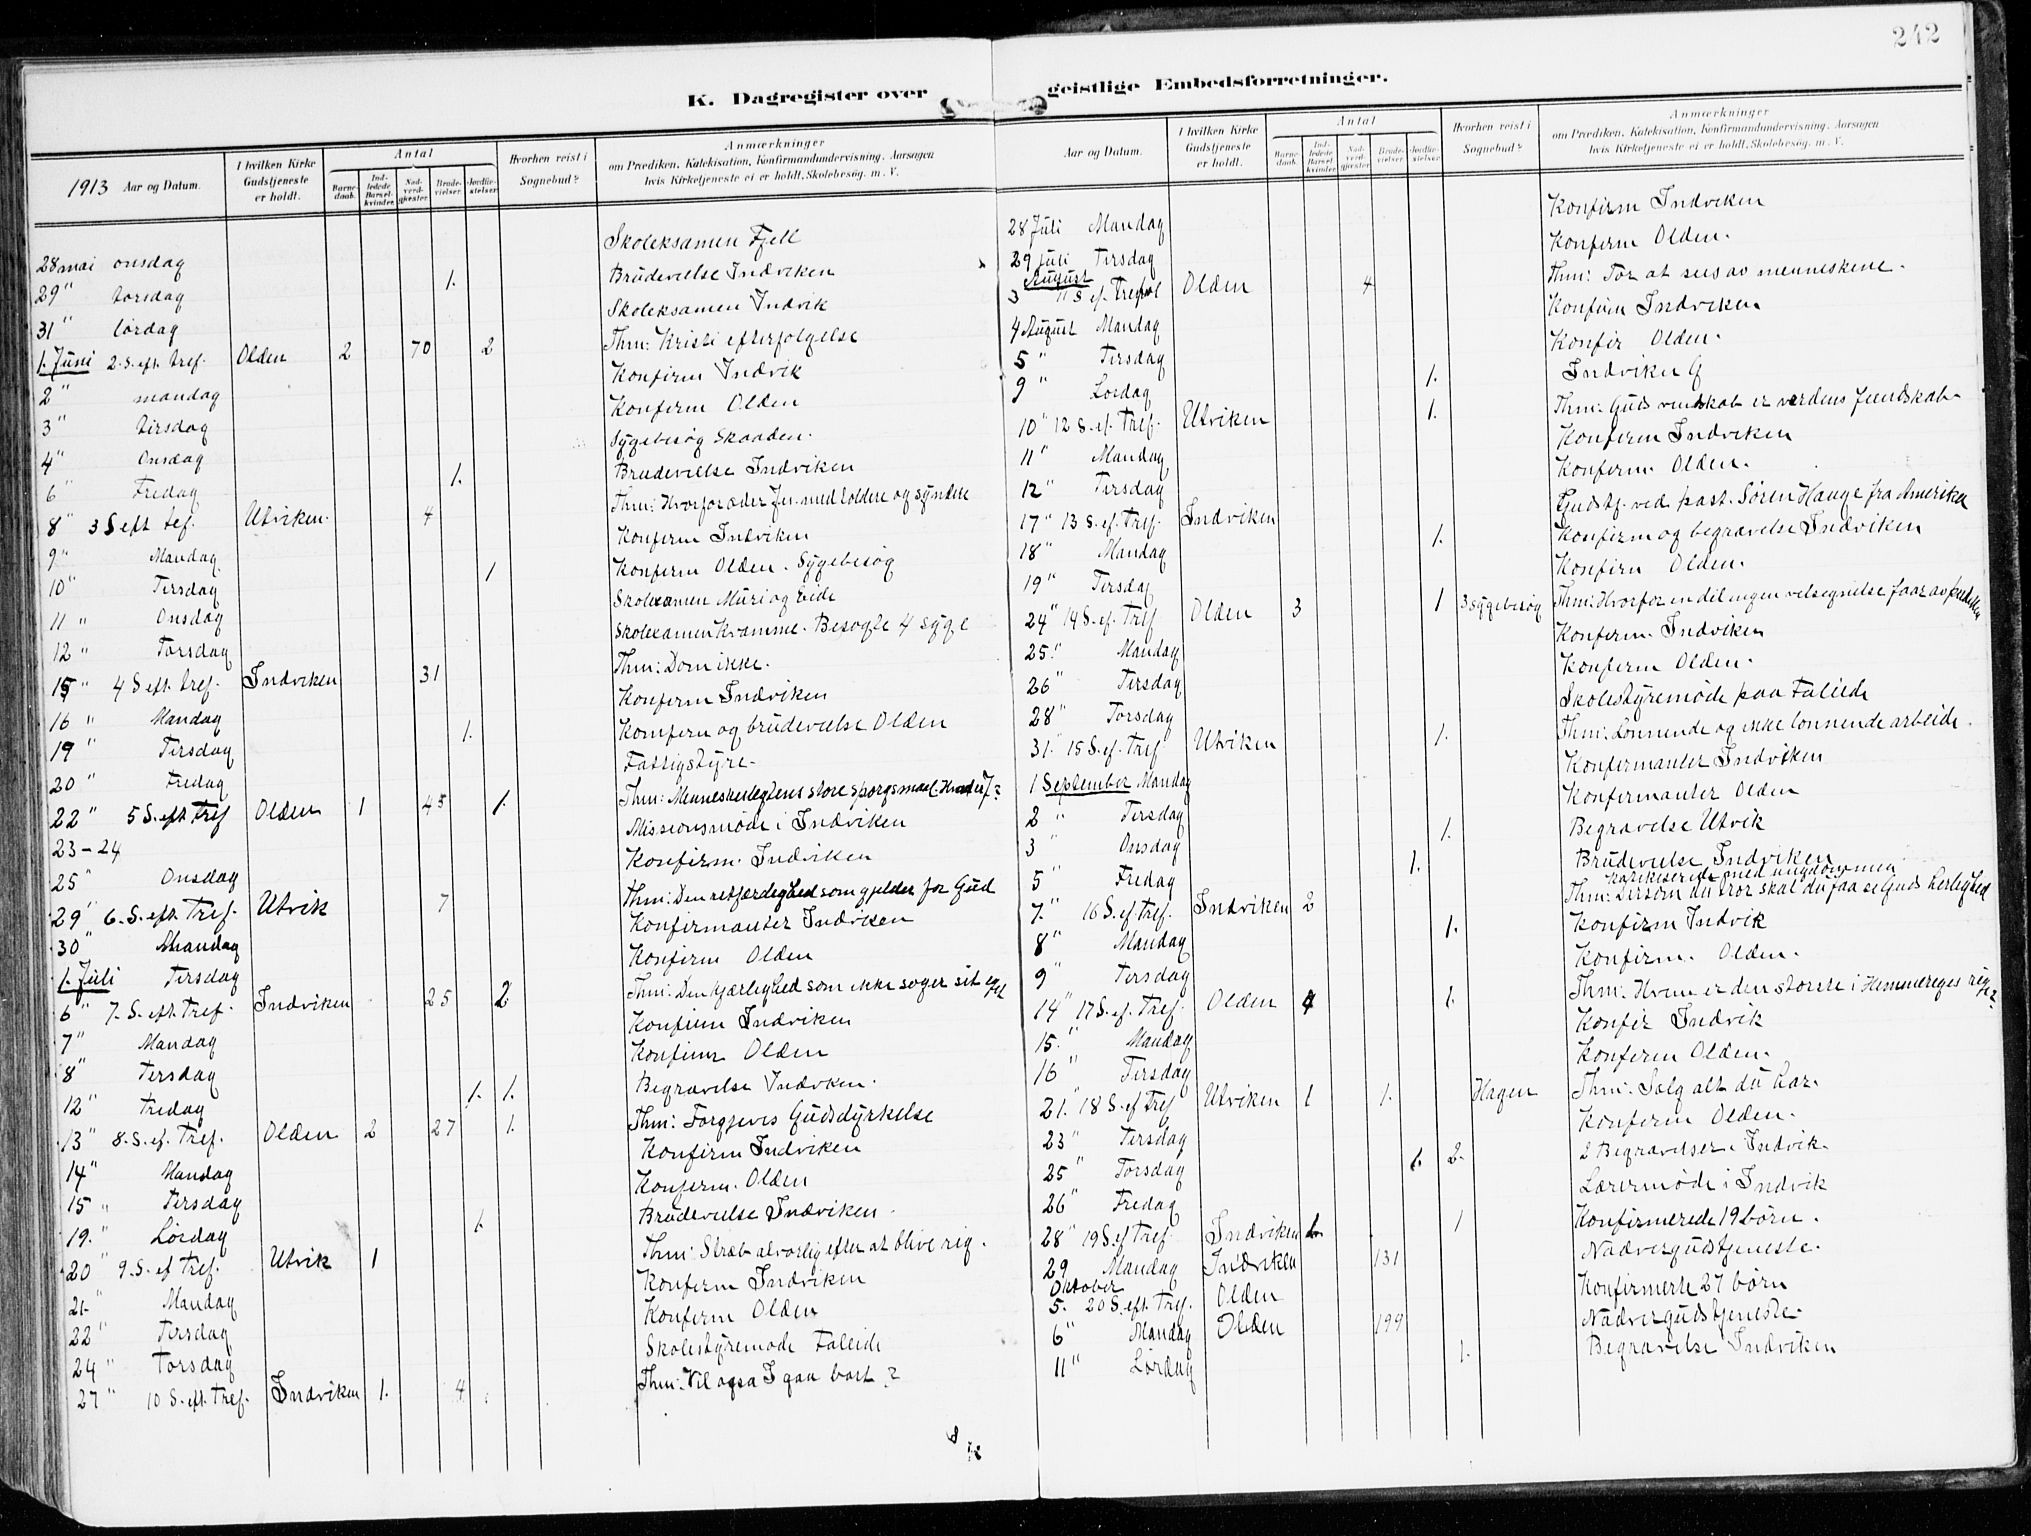 242
K. Dagregister over geistlige Embedsforretninger.
1913 Aar og Datum.
I hvilken Kirke Gudstjeneste er holdt.
Antal
Barnedaab.
Indledede Barselkvinder.
Nadverdgjester.
Brudevielser.
Jordfæstelser.
Hvorhen reist i Sognebud?
Anmærkninger
om Prædiken, Katekisation, Konfirmandundervisning, Aarsagen
hvis Kirketjeneste ei er holdt, Skolebesøg. m. V.
28 mai onsdag Skoleksamen Fjell
29 " torsdag 1. Brudevielse Indviken
31 " lørdag Skoleksamen Indvik
1. Juni 2. S. eft. tref. Olden 2 70 2 Thm: Kristi efterfølgelse
2 " mandag Konfirm Indvik
3 " tirsdag Konfirm Olden
4 " Onsdag Sygebesøg Skaaden.
6 " Fredag 1. Brudevielse Indviken
8 " 3 S eft tef. Utviken. 4 Thm: Hvorfor æder Jer. med toldere og syndere
9 " Mandag Konfirm Indviken
10 " Tirsdag 1 Konfirm Olden. Sygebesøg
11 " Onsdag Skolexamen Muri og Eide
12 " Torsdag Skolexamen Kvamme. Besøgte 4 syge
15 " 4 S eft. tref. Indviken 31 Thm: Dom ikke.
16 " Mandag Konfirm Indviken
19 " Tirsdag 1. Komfirm og brudevielse Olden
20 " Fredag Fattigstyre.
22 " 5 S. eft Tref Olden 1 45 1. Thm: Menneskeslegtens store spørgsmaal:
23-24 Missionsmøde i Indviken
25 " Onsdag Konfirm. Indviken
29 " 6. S. eft. Tref. Utvik 7 Thm: Den retfærdighed som gjelder for Gud
30 " Mandag Konfirmanter Indviken
1. Juli Tirsdag Konfirm Olden
6 " 7. S. eft. Tref. Indviken 25 2 Thm: Den kjærlighed som ikke søger sit eget
7 " Mandag Konfirm Indviken
8 " Tirsdag Konfirm Olden
12 " Fredag 1. 1. Begravelse Indviken.
13 " 8. S. ef. Tref. Olden 2 27 1. Thm: Forgjeves Gudsdyrkelse
14 " Mandag Konfirm Indviken
15 " Tirsdag Konfirm. Olden
19. " Lørdag 1. Brudevielse Indviken.
20 " 9. S. ef Tref. Utvik 1 Thm: Stræb alvorlig efter at blive rig.
21. " Mandag Konfirm Indviken
22 " Tirsdag Konfirm Olden
24 " Torsdag Skolestyremøde Faleide
27 " 10 S. eft. Tref. Indviken 1. 4 Thm: Vil ogsa I gaa bort?
Aar og Datum.
I hvilken Kirke Gudstjeneste er holdt.
Antal
Barnedaab.
Indledede Barselkvinder
Nadverdgjester
Brudevielser
Jordfæstelser
Hvorhen reist i Sognebud?
Anmærkninger
om Prædiken, Katekisation, Konfirmandundervisning, Aarsagen
hvis Kirketjeneste ei er holdt, Skolebesøg. m. V.
28 Juli Mandag Konfirm Indviken
29 juli Tirsdag Konfirm Olden.
August
3 11 S ef. Tref Olden 4 Thm: For at sees av menneskene.
4 August Mandag Konfirm Indviken
5 " Tirsdag Konfir Olden.
9 " Lørdag 1. Indviken
10 " 12 S. ef. Tref. Utviken 1. Thm: Guds venskab er verdens fiendskab.
11 " Mandag Konfirm Indviken
12 " Tirsdag Konfirm. Olden.
17 " 13 S. ef. Tref. Indviken Gudstj. ved past. Søren Hauge fra Amerika
18 " Mandag 1. Konfirm og begravelse Indviken
19 " Tirsdag Konfirm Olden.
24 " 14 S. ef. Tref Olden 3 1 3 Sygebesøg Thm: Hvorfor en del ingen velsegnelse faar av
25. " Mandag Konfirm. Indviken
26 " Tirsdag Konfirm Olden.
28 " Torsdag Skolestyremøde paa Faleide
31. " 15 S. ef. Tref Utviken 1. Thm: Lønnende og ikke lønnende arbeide.
1 September Mandag Konfirmanter Indviken
2 " Tirsdag Konfirmanter Olden
3 Onsdag 1. Begravelse Utvik
5 " Fredag 1. Brudevielse Indviken
Katekiserede med ungdommen
7. " 16 S. ef. Tref. Indviken 2 Thm: Dersom du tror skal du faa se Guds herlighed
8 " Mandag 1. Konfirm Indvik
9 " Tirsdag Konfirm. Olden.
14 " 17 S. ef. Tref. Olden 4 1. Thm: Hvem er den største i Himmeriges rige?
15. " Mandag Konfir Indvik
16 " Tirsdag Konfirm Olden.
21. " 18 S. ef Tref Utviken 1 1. Hagen Thm: Salg alt du har.
23 " Tirsdag Konfirm Olden.
25 " Torsdag 1. 2. 2 Begravelser i Indvik.
26 " Fredag Lærermøde i Indvik
28 " 19 S. ef Tref. Indviken 1 Konfirmerede 19 børn.
29 Mandag Indviken 131 Nadvergudstjeneste.
Oktober
5. 20 S. eft. Tref. Olden Konfirmerte 27 børn
6 " Mandag Olden 199 Nadvergudstjeneste.
11 " Lørdag 1. Begravelse Indviken